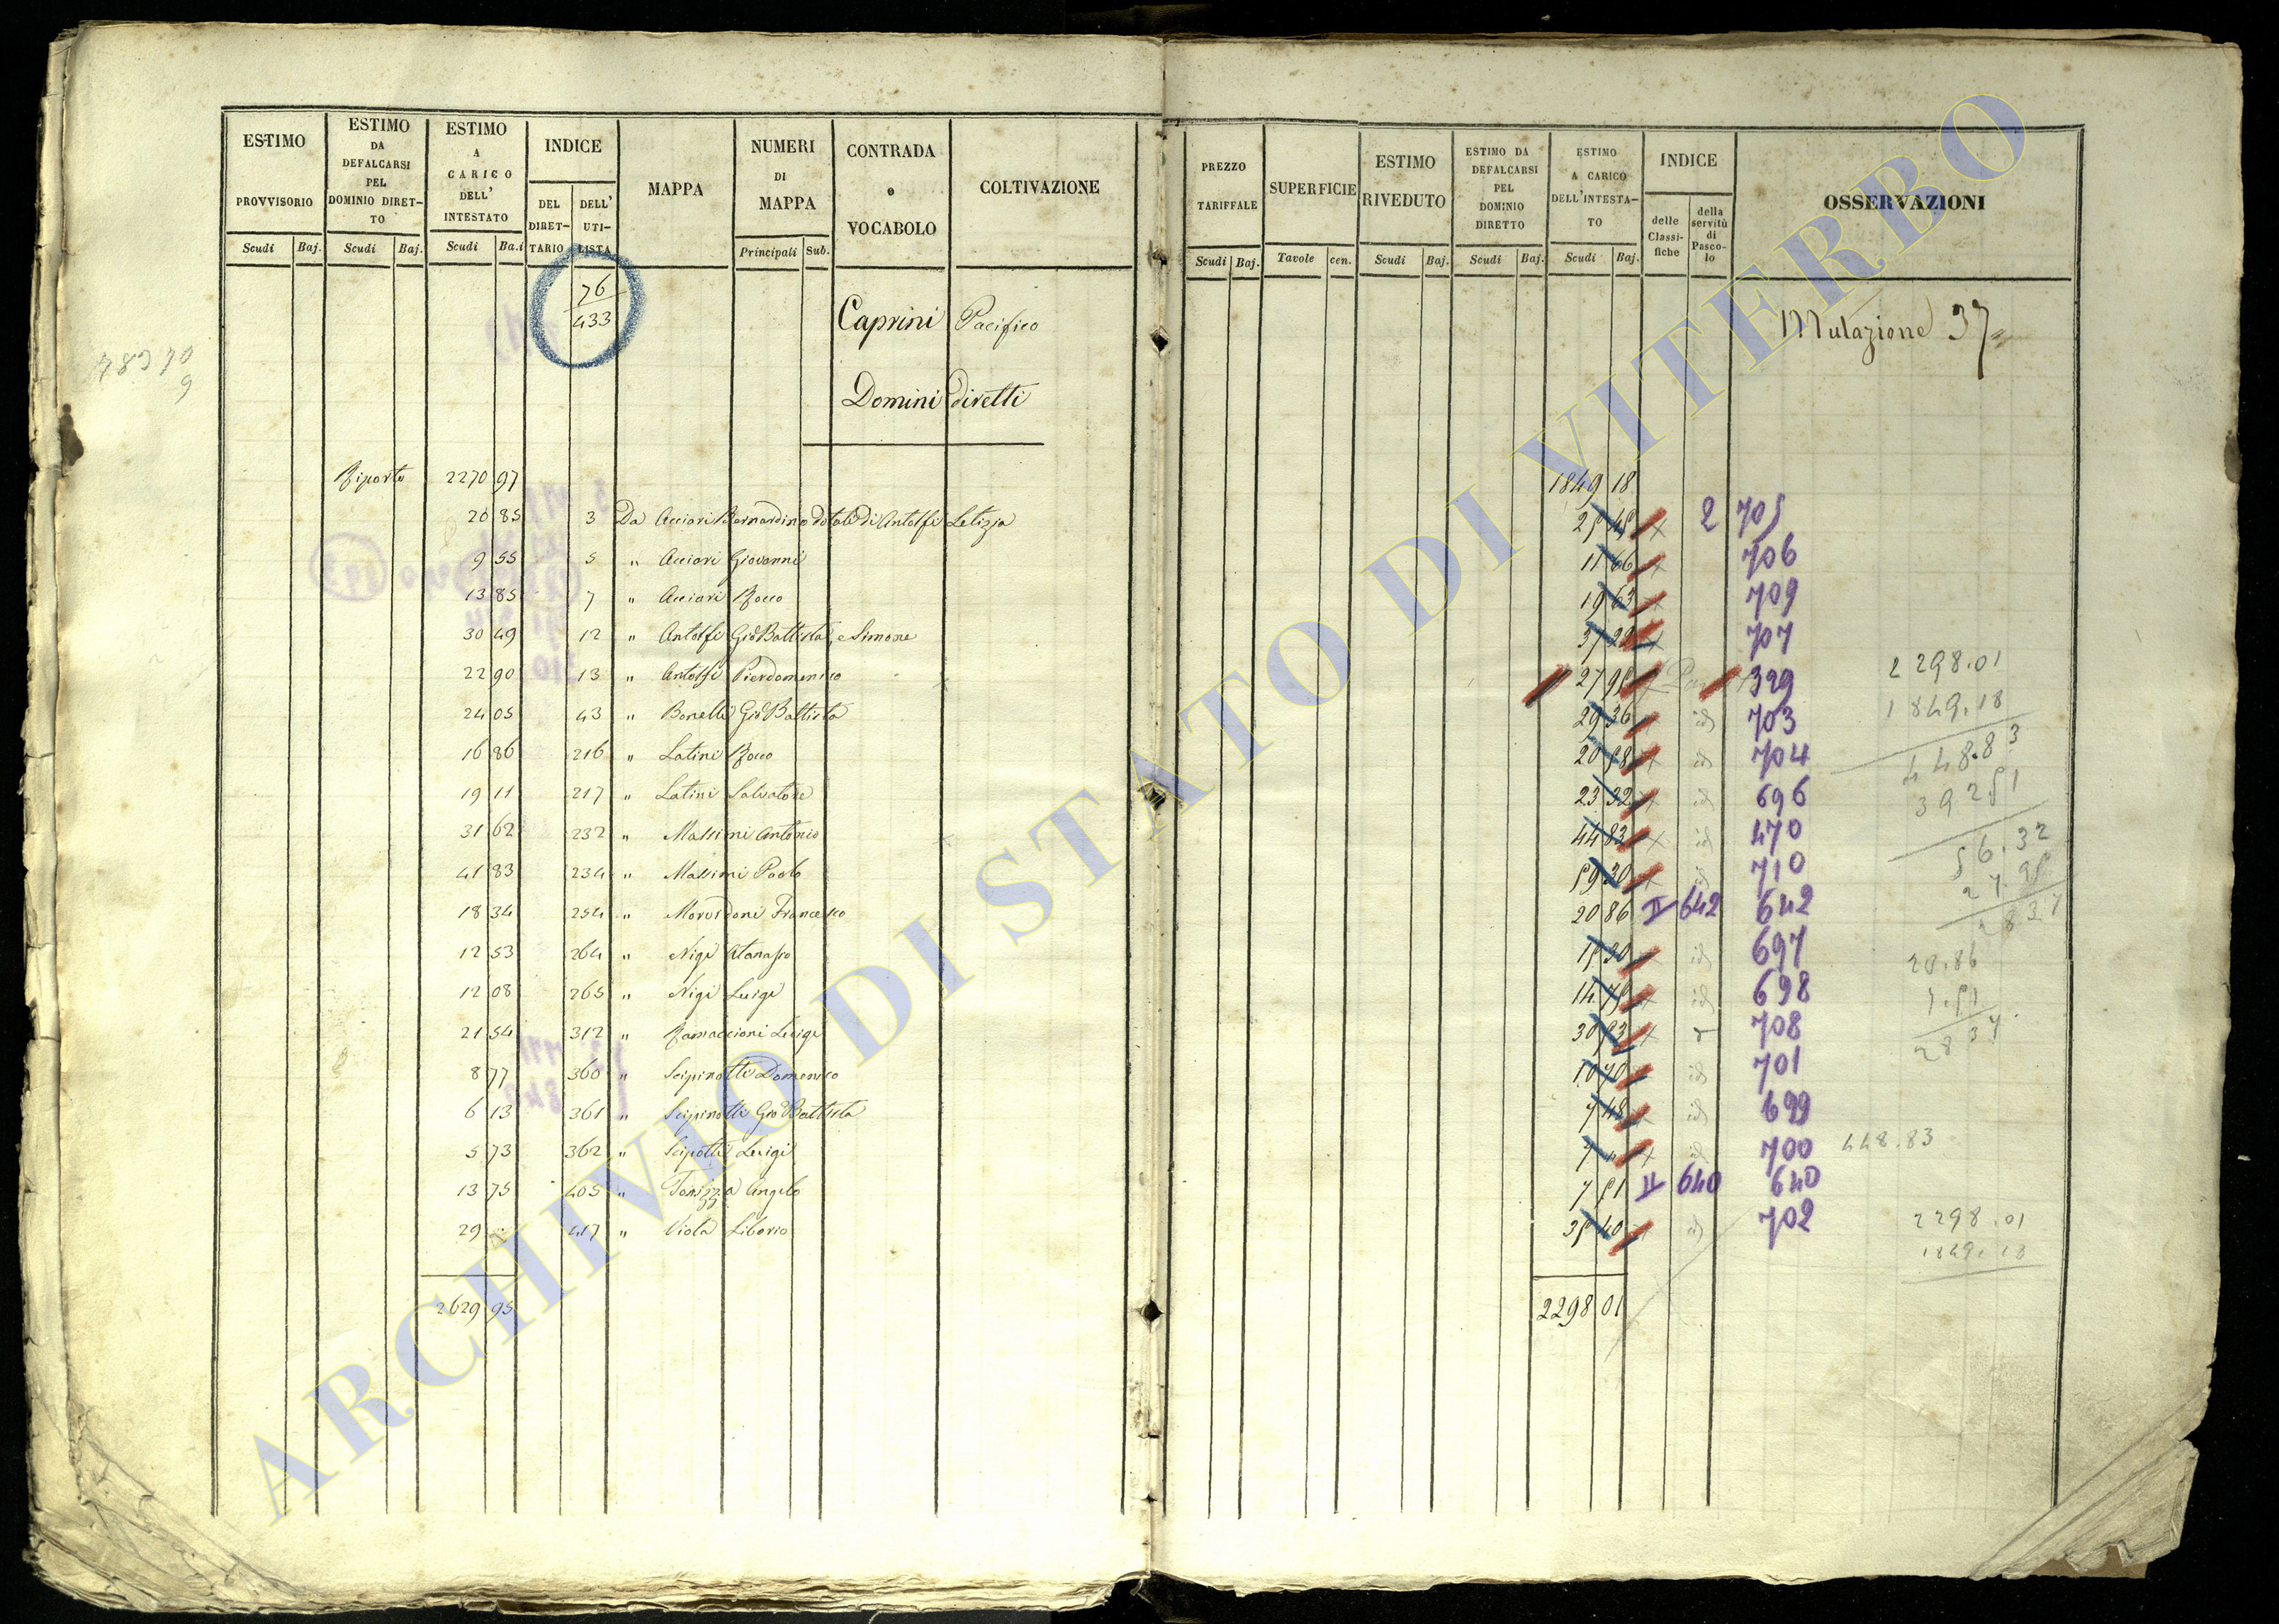 ESTIMO PROVVISORIO
Scudi Baj.
ESTIMO DA DEFALCARSI PEL DOMINIO DIRET-TO
Scudi Baj.
ESTIMO A CARICO DELL' INTESTATO
Scudi Ba.i
INDICE
DEL DIRET-TARIO
DELL' UTI-LISTA
MAPPA
NUMERI DI MAPPA
Principali Sub.
CONTRADA o VOCABOLO
COLTIVAZIONE
76
433
Caprini Pacifico
Domini diretti
Riporto 2270 97
20 85 3 Da Acciari Bernardino dotale di Antolfi Letizia
9 55 5 " Acciari Giovanni
13 85 7 " Acciari Rocco
30 49 12 " Antolfi Gio Battista, e Simone
22 90 13 " Antolfi Pierdomenico
24 05 43 " Bonelli Gio Battista
16 86 216 " Latini Rocco
19 11 217 " Latini Salvatore
31 62 232 " Massimi Antonio
41 83 234 " Massimi Paolo
18 34 254 " Francesco
12 53 264 " Nigi Atanasio
12 08 265 " Nigi Luigi
21 54 312 " Ramaccioni Luigi
8 77 360 " Scipinotti Domenico
6 13 361 " Scipinotti Gio Battista
5 73 362 " Scipotti Luigi
13 75 405 " Angelo
29 417 " Viola Liborio
2629 95
PREZZO TARIFFALE
Scudi Baj.
SUPERFICIE
Tavole cen.
ESTIMO RIVEDUTO
Scudi Baj.
ESTIMO DA DEFALCARSI PEL DOMINIO DIRETTO
Scudi Baj.
ESTIMO A CARICO DELL'INTESTA-TO
Scudi Baj.
INDICE
delle Classi-fiche
della servitù di Pasco-lo
OSSERVAZIONI
Mutazione 37
1849 18
25 45 x 2 705
11 66 x 706
19 63 x 709
37 22 x 707
27 95 329
29 36 id 703
20 58 x id 704
23 32 x id 696
44 83 x id 470
59 30 x 710
20 86 II 642 642
15 30 x id 697
14 75 x id 698
30 53 x 708
10 70 x id 701
7 48 x id 699
7 " x id 700
7 51 II 640 640
35 40 id 702
2298 01
2298.01
1849.18
448.83
392 51
56.32
27.95
28 37
20.86
7.51
28 37
448.83
2298.01
1849.18
ARCHIVIO DI STATO DI VITERBO